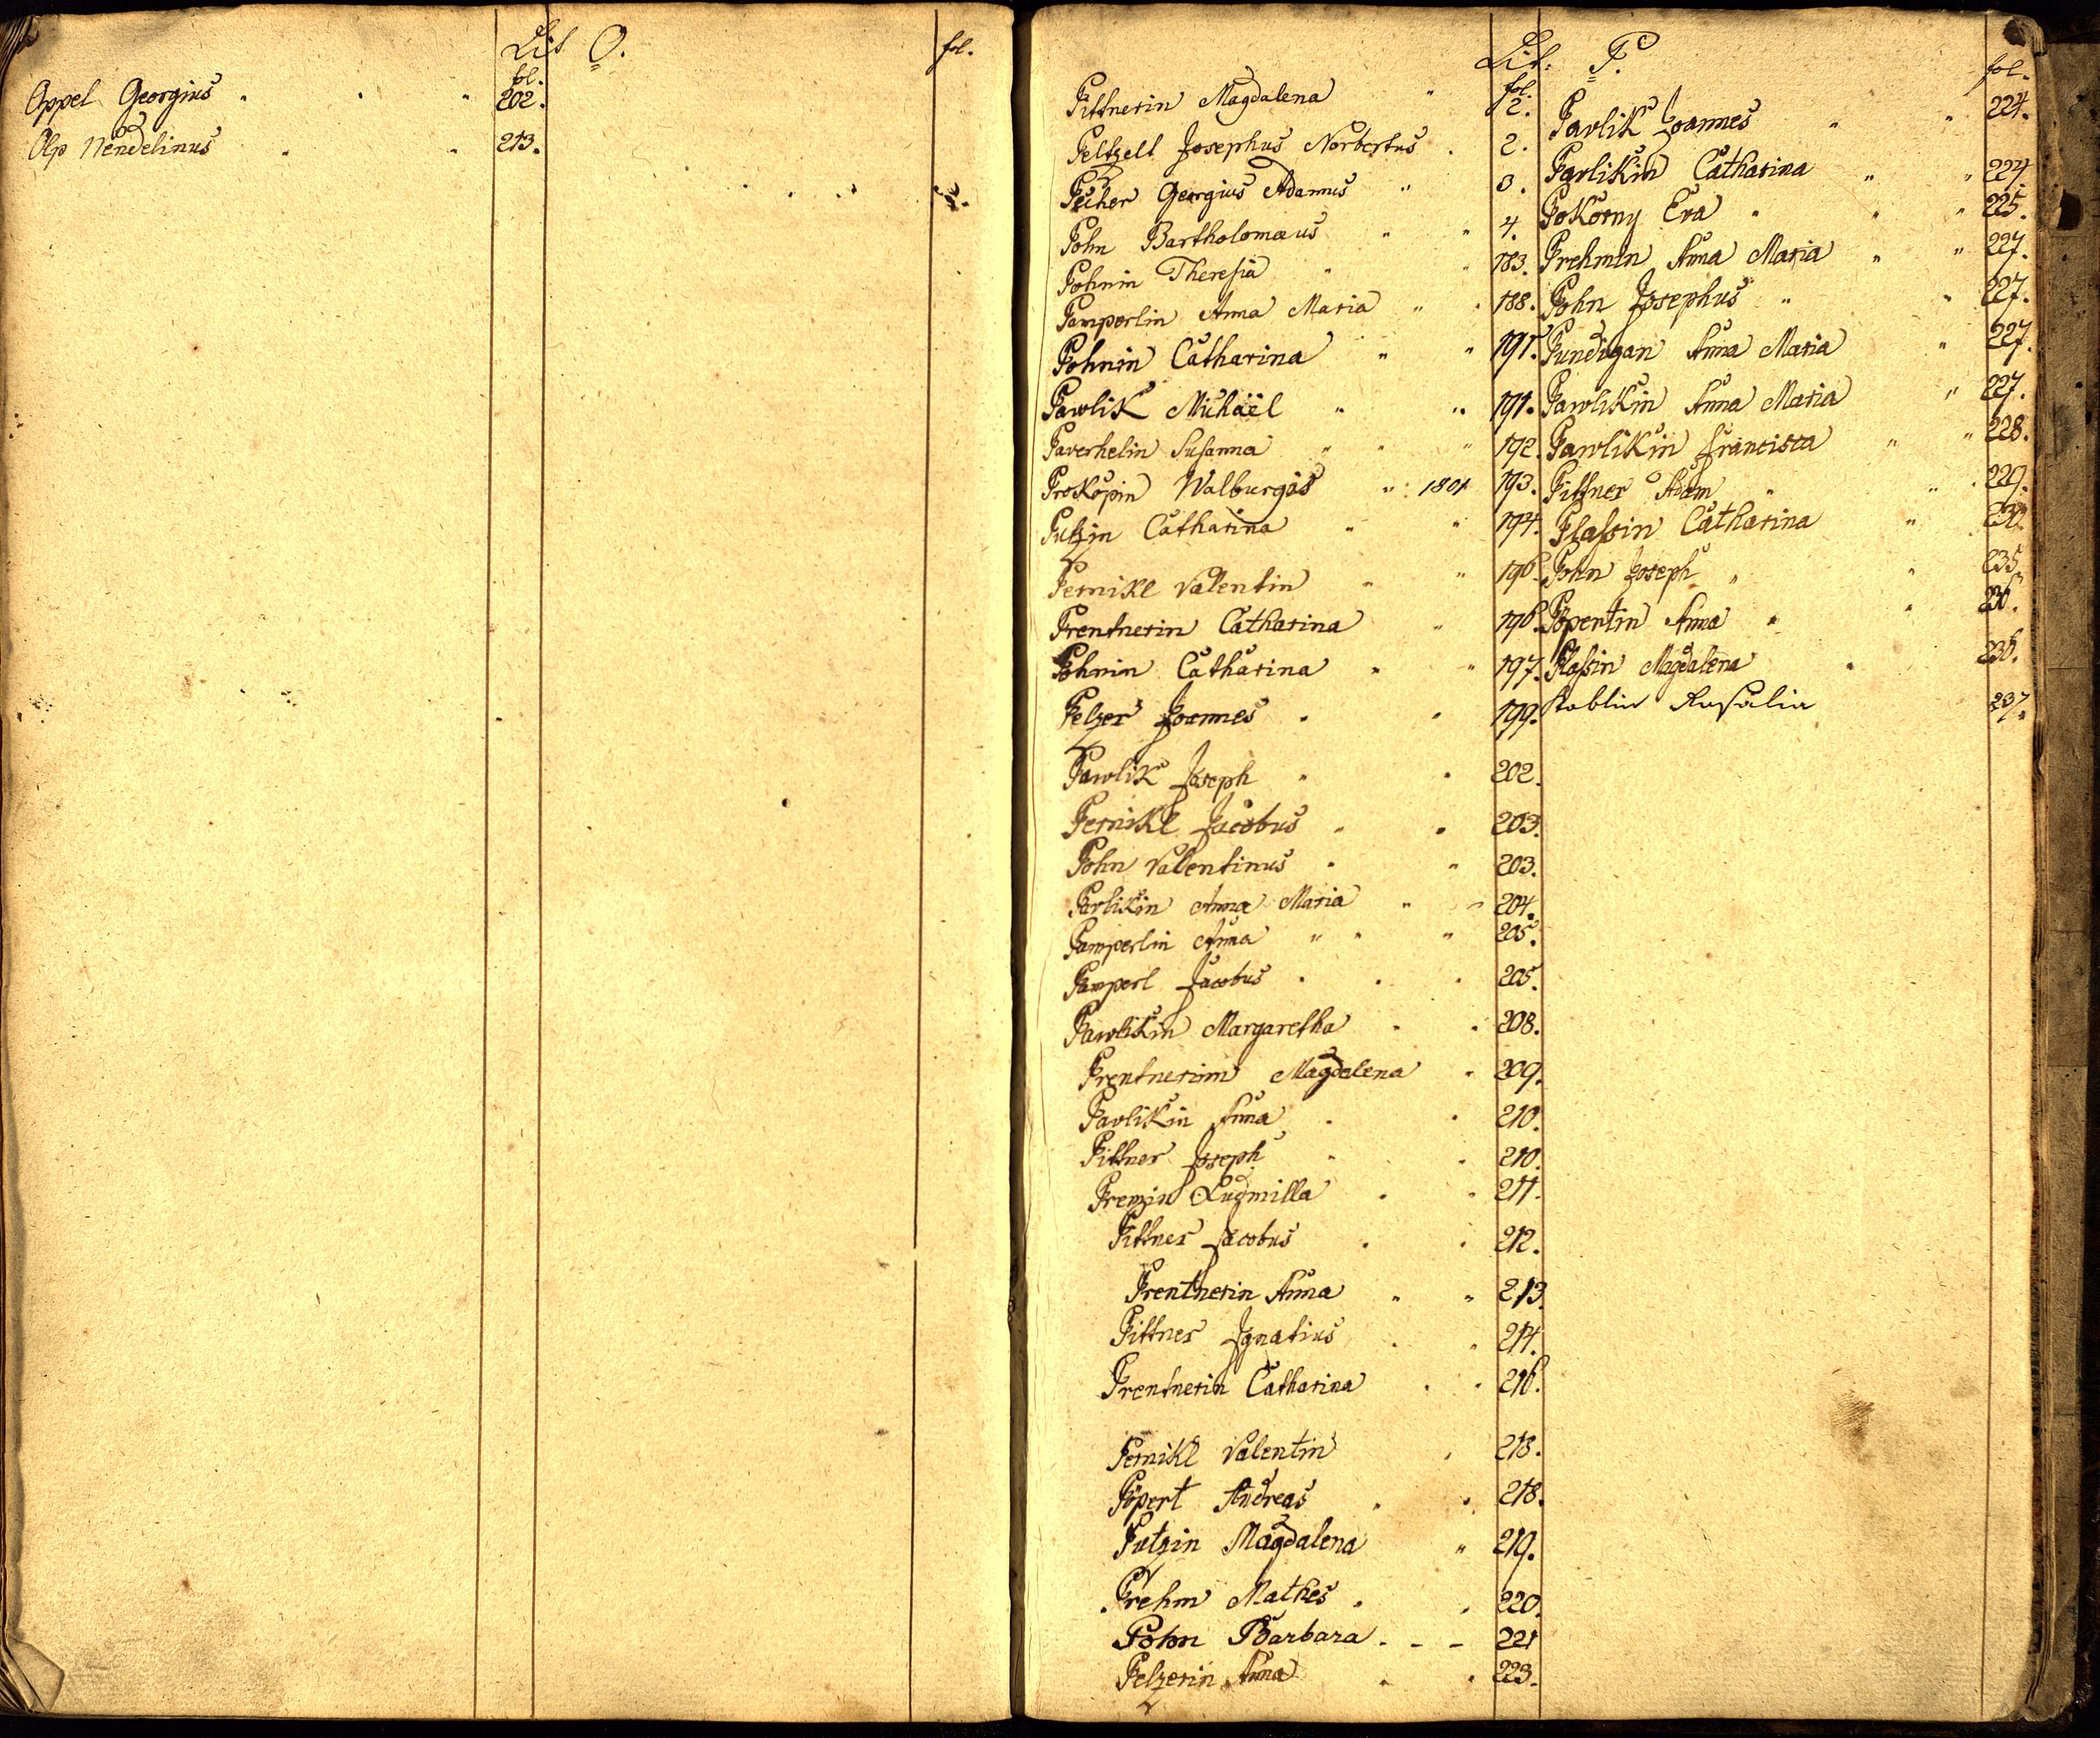 Lit O. fol.
fol.
Oppel Georgius 202.
Olp Wendelinus 213.
Lit. P.
fol. fol.
Pittnerin Magdalena 2.
Peltzelt Josephus Norbertus 2.
Pecher Georgius Adamus 3.
Pohn Bartholomæus 4.
Pohnin Theresia 183.
Pamperlin Anna Maria 188.
Pohnin Catharina 191.
Pawlik Michäel 191.
Paverhelin Susanna 192.
Prokopin Walburgis 1801 193.
Putzin Catharina 194.
Pernikl Valentin 196.
Prentnerin Catharina 196.
Pohnin Catharina 197.
Pelzer Joannes 199.
Pawlik Joseph 202.
Pernikl Jacobus 203.
Pohn Valentinus 203.
Pavlikin Anna Maria 204.
Pamperlin Anna 205.
Pamperl Jacobus 205.
Pawlikin Margaretha 208.
Prentnerinn Magdalena 209.
Pavlikin Anna 210.
Pittner Joseph 210.
Premzin Ludmilla 211.
Pittner Jacobus 212.
Prentnerin Anna 213.
Pittner Ignatius 214.
Prentnerin Catharina 216.
Pernikl Valentin 218.
Pöpert Andreas 218.
Putzin Magdalena 219.
Prehm Mathes 220.
Pohn Barbara 221
Pelzerin Anna 223.
Pavlik Joannes 224.
Pavlikin Catharina 224
Pokorny Eva 225.
Prehmin Anna Maria 227.
Pohn Josephus 227.
Pundigan Anna Maria 227.
Pawlikin Anna Maria 227.
Pawlikin Francisca 228.
Pittner Adam 229.
Plassin Catharina
Pohn Joseph 235
Popentin Anna 236.
Plassin Magdalena 236.
Rosalia 237.